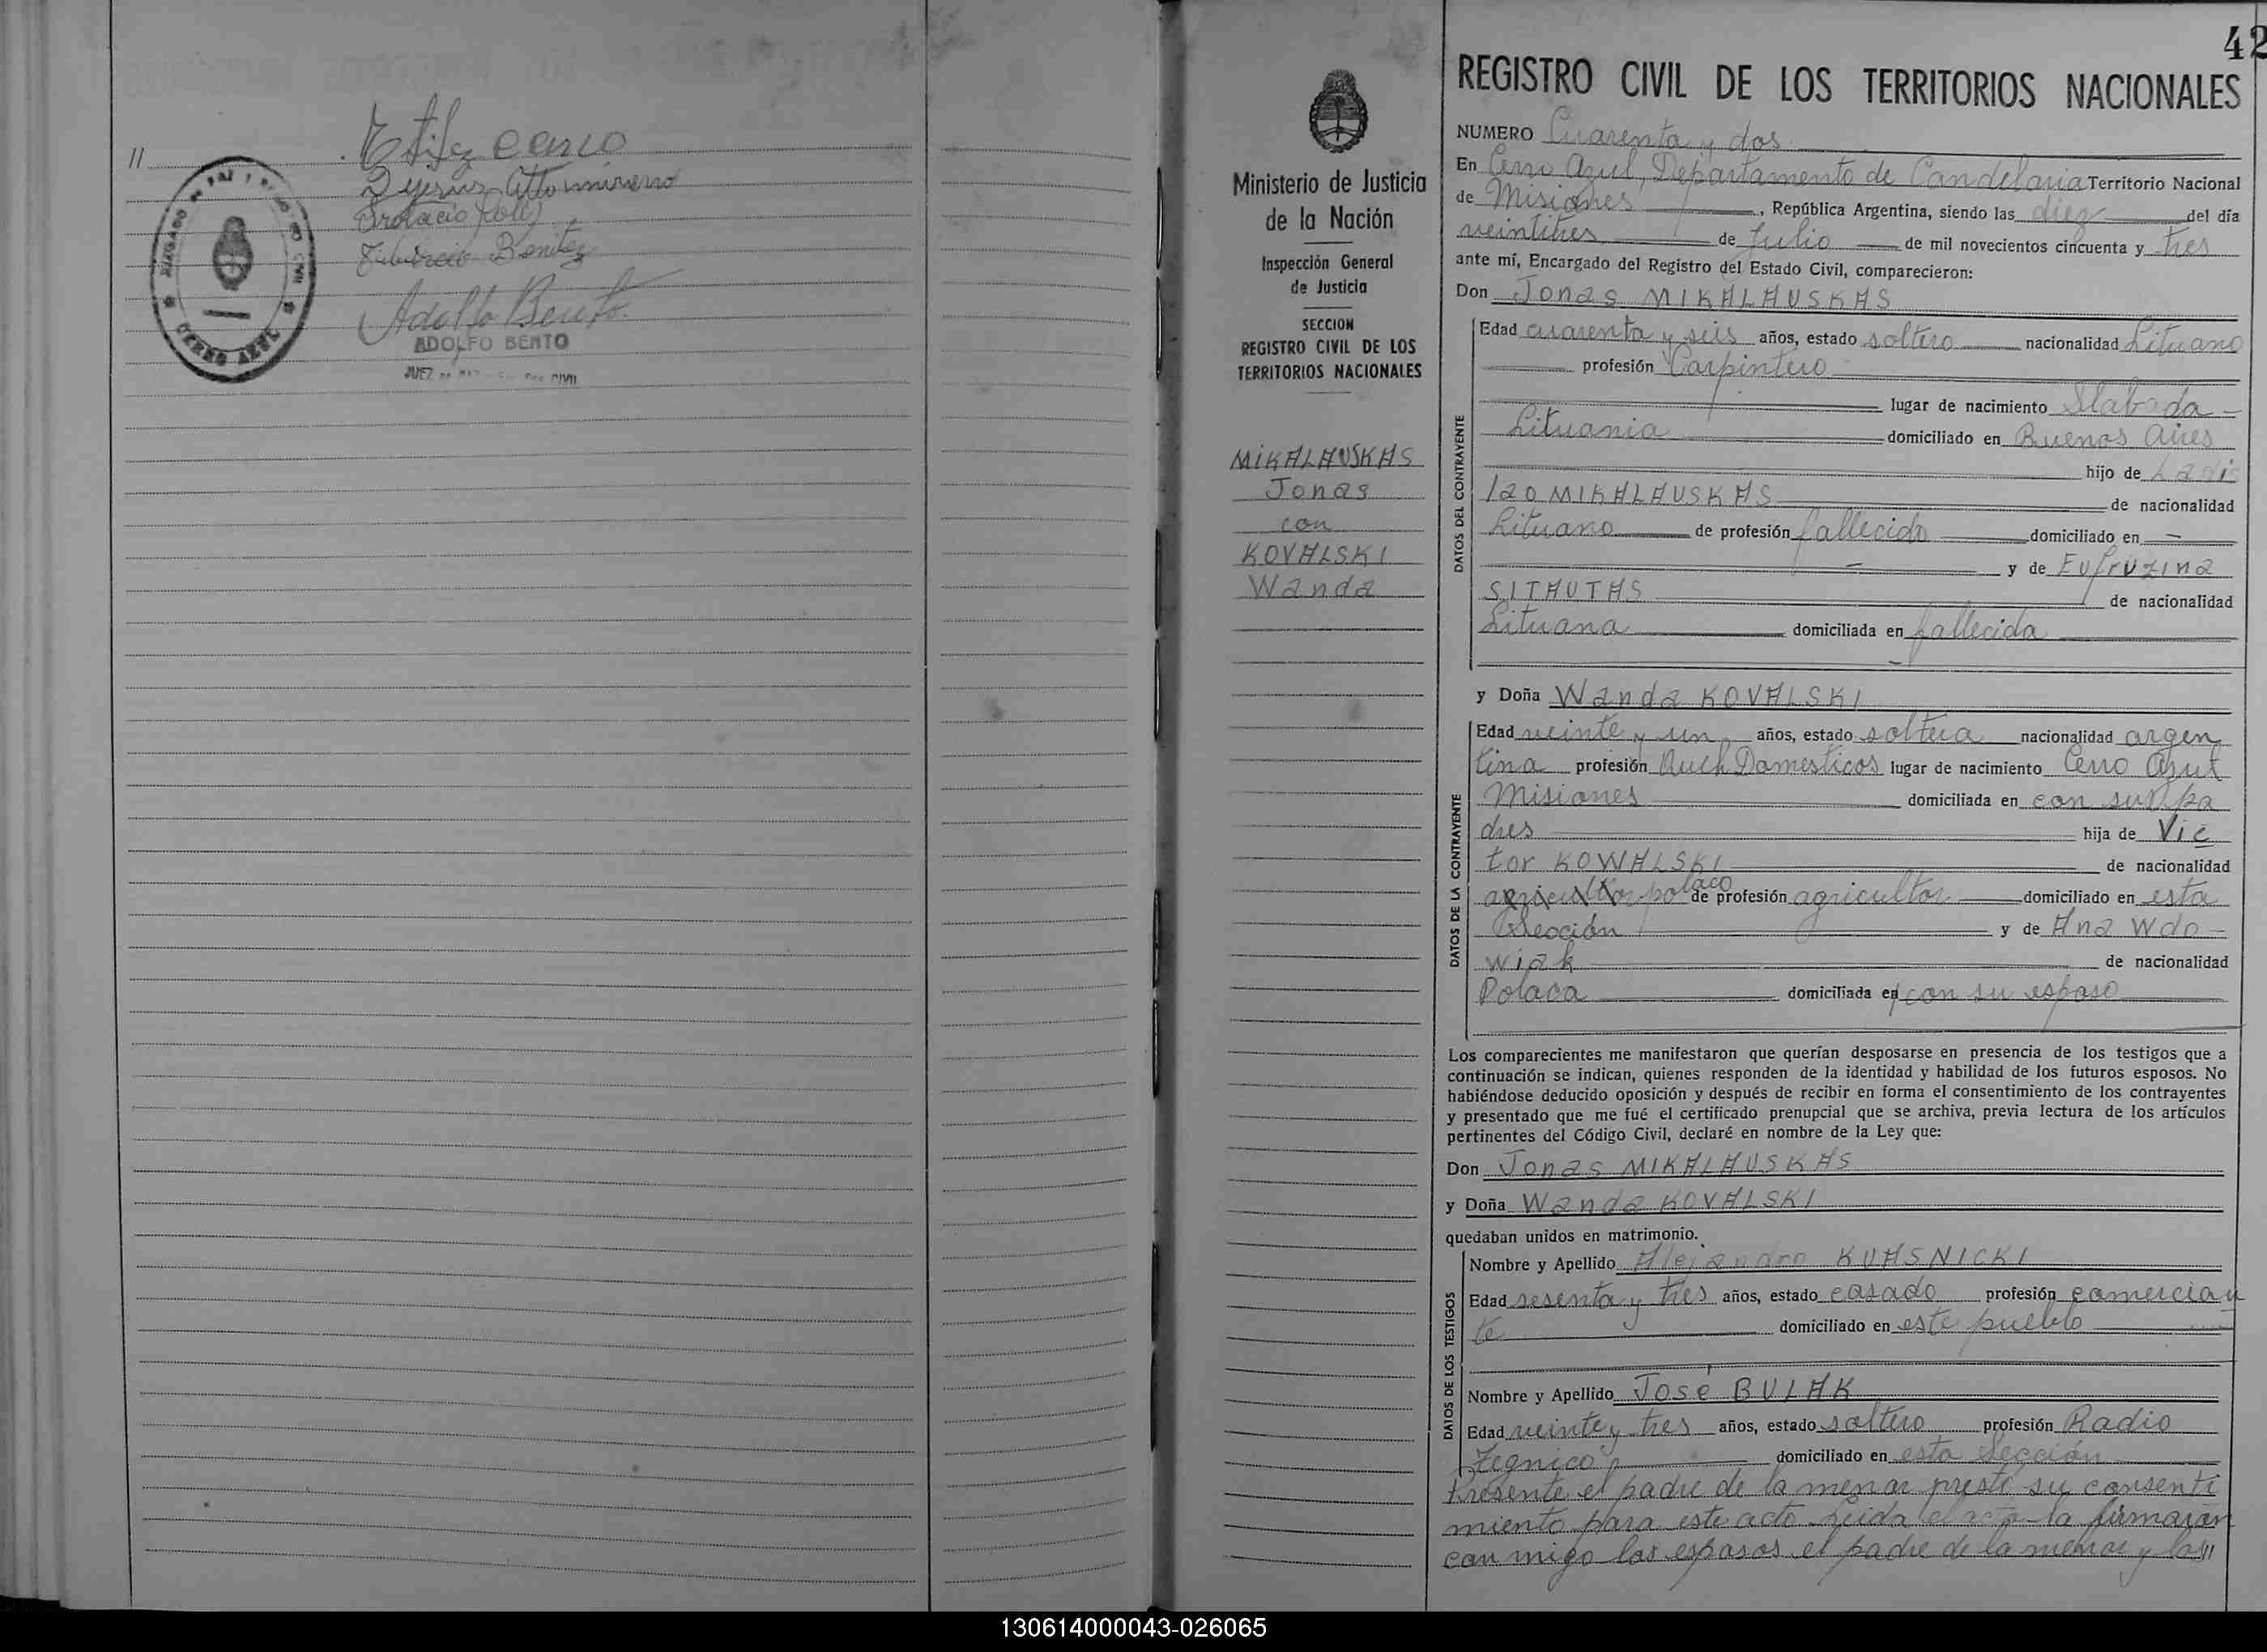 42
//
Dejesus Altominireno
Tiburcio Benitez
Adolfo Bento
ADOLFO BENTO
JUEZ
CERRO AZUL
Ministerio de Justicia
de la Nación
Inspección General
de Justicia
SECCION
REGISTRO CIVIL DE LOS
TERRITORIOS NACIONALES
MIKALAUSKAS
Jonas
con
KOVALSKI
Wanda
REGISTRO CIVIL DE LOS TERRITORIOS NACIONALES
NUMERO Cuarenta y dos
En Cerro Azul, Departamento de Candelaria Territorio Nacional
de Misiones, República Argentina, siendo las diez del día
veintitres de Julio de mil novecientos cincuenta y tres
ante mí, Encargado del Registro del Estado Civil, comparecieron:
Don Jonas MIKALAUSKAS
DATOS DEL CONTRAYENTE
Edad cuarenta y seis años, estado soltero nacionalidad Lituano
profesión Carpintero
lugar de nacimiento Slaboda -
Lituania domiciliado en Buenos Aires
hijo de Ladis
lao MIKALAUSKAS de nacionalidad
Lituano de profesión fallecido domiciliado en -
y de Eufruzina
SITAUTAS de nacionalidad
Lituana domiciliada en fallecida
y Doña Wanda KOVALSKI
DATOS DE LA CONTRAYENTE
Edad veinte y un años, estado soltera nacionalidad argen
tina profesión Queh Domesticos lugar de nacimiento Cerro Azul
Misiones domiciliada en con sus pa
dres hija de Vic
tor KOWALSKI de nacionalidad
agricultor polaco de profesión agricultor domiciliado en esta
Sección y de Ana Wdo -
wiak de nacionalidad
Polaca domiciliada en con su esposo
Los comparecientes me manifestaron que querían desposarse en presencia de los testigos que a
continuación se indican, quienes responden de la identidad y habilidad de los futuros esposos. No
habiéndose deducido oposición y después de recibir en forma el consentimiento de los contrayentes
y presentado que me fué el certificado prenupcial que se archiva, previa lectura de los artículos
pertinentes del Código Civil, declaré en nombre de la Ley que:
Don Jonas MIKALAUSKAS
y Doña Wanda KOVALSKI
quedaban unidos en matrimonio.
DATOS DE LOS TESTIGOS
Nombre y Apellido Alejandro KUASNICKI
Edad sesenta y tres años, estado casado profesión comercian
te domiciliado en este pueblo
Nombre y Apellido José BULAK
Edad veinte y tres años, estado soltero profesión Radio
Tegnico domiciliado en esta Sección
Presente el padre de la menor presto su consenti
miento para este acto. Leida el acta la firmaron
con migo los esposos el padre de la menor y los //
130614000043-026065